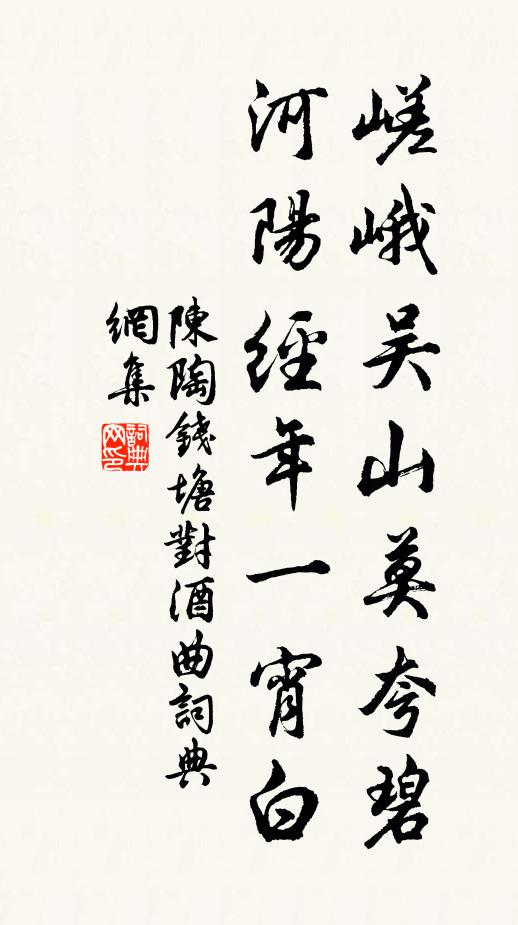 嵯峨吴山莫夸碧
河陽經年一宵白
陳陶錢塘對酒曲詞典
網集
詞典
网印